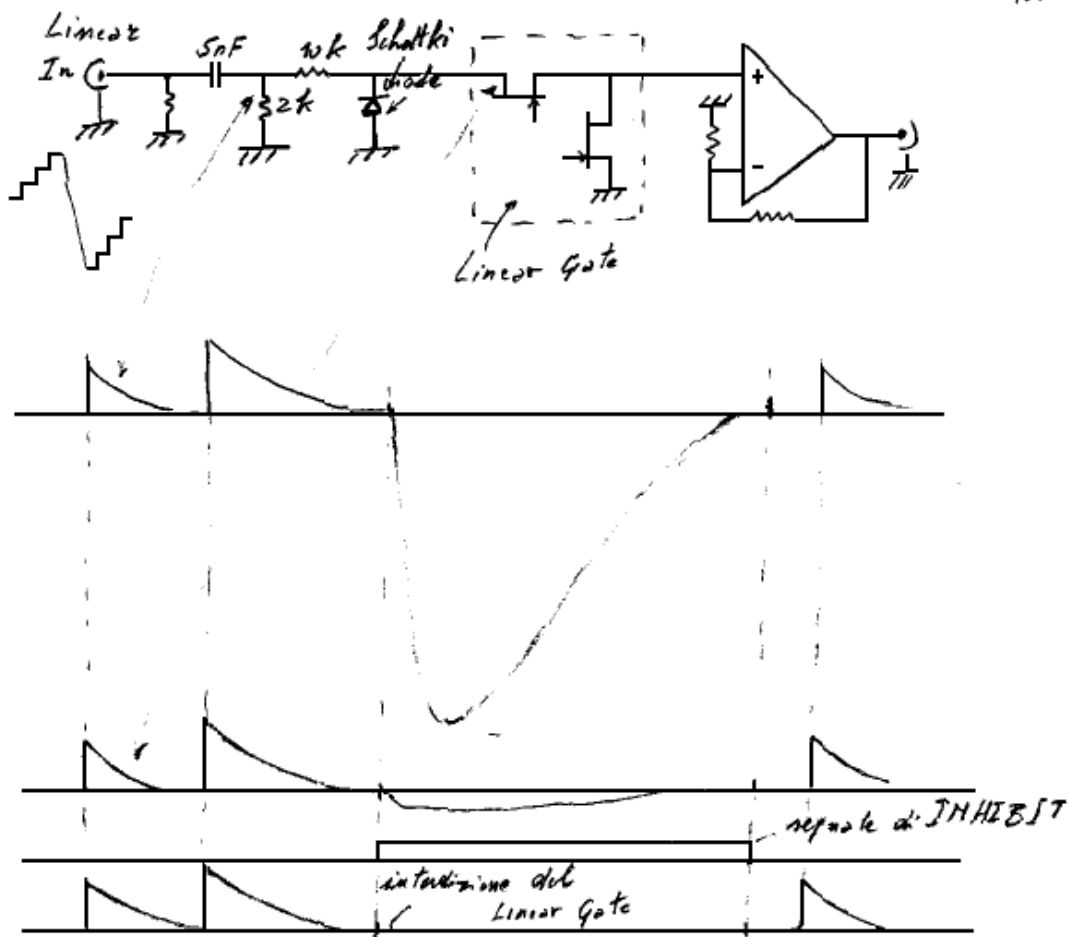 Linear
In
5nF
10k
Schottki
diode
2k
+
-
Linear Gate
segnale di INHIBIT
interdizione del
Linear Gate